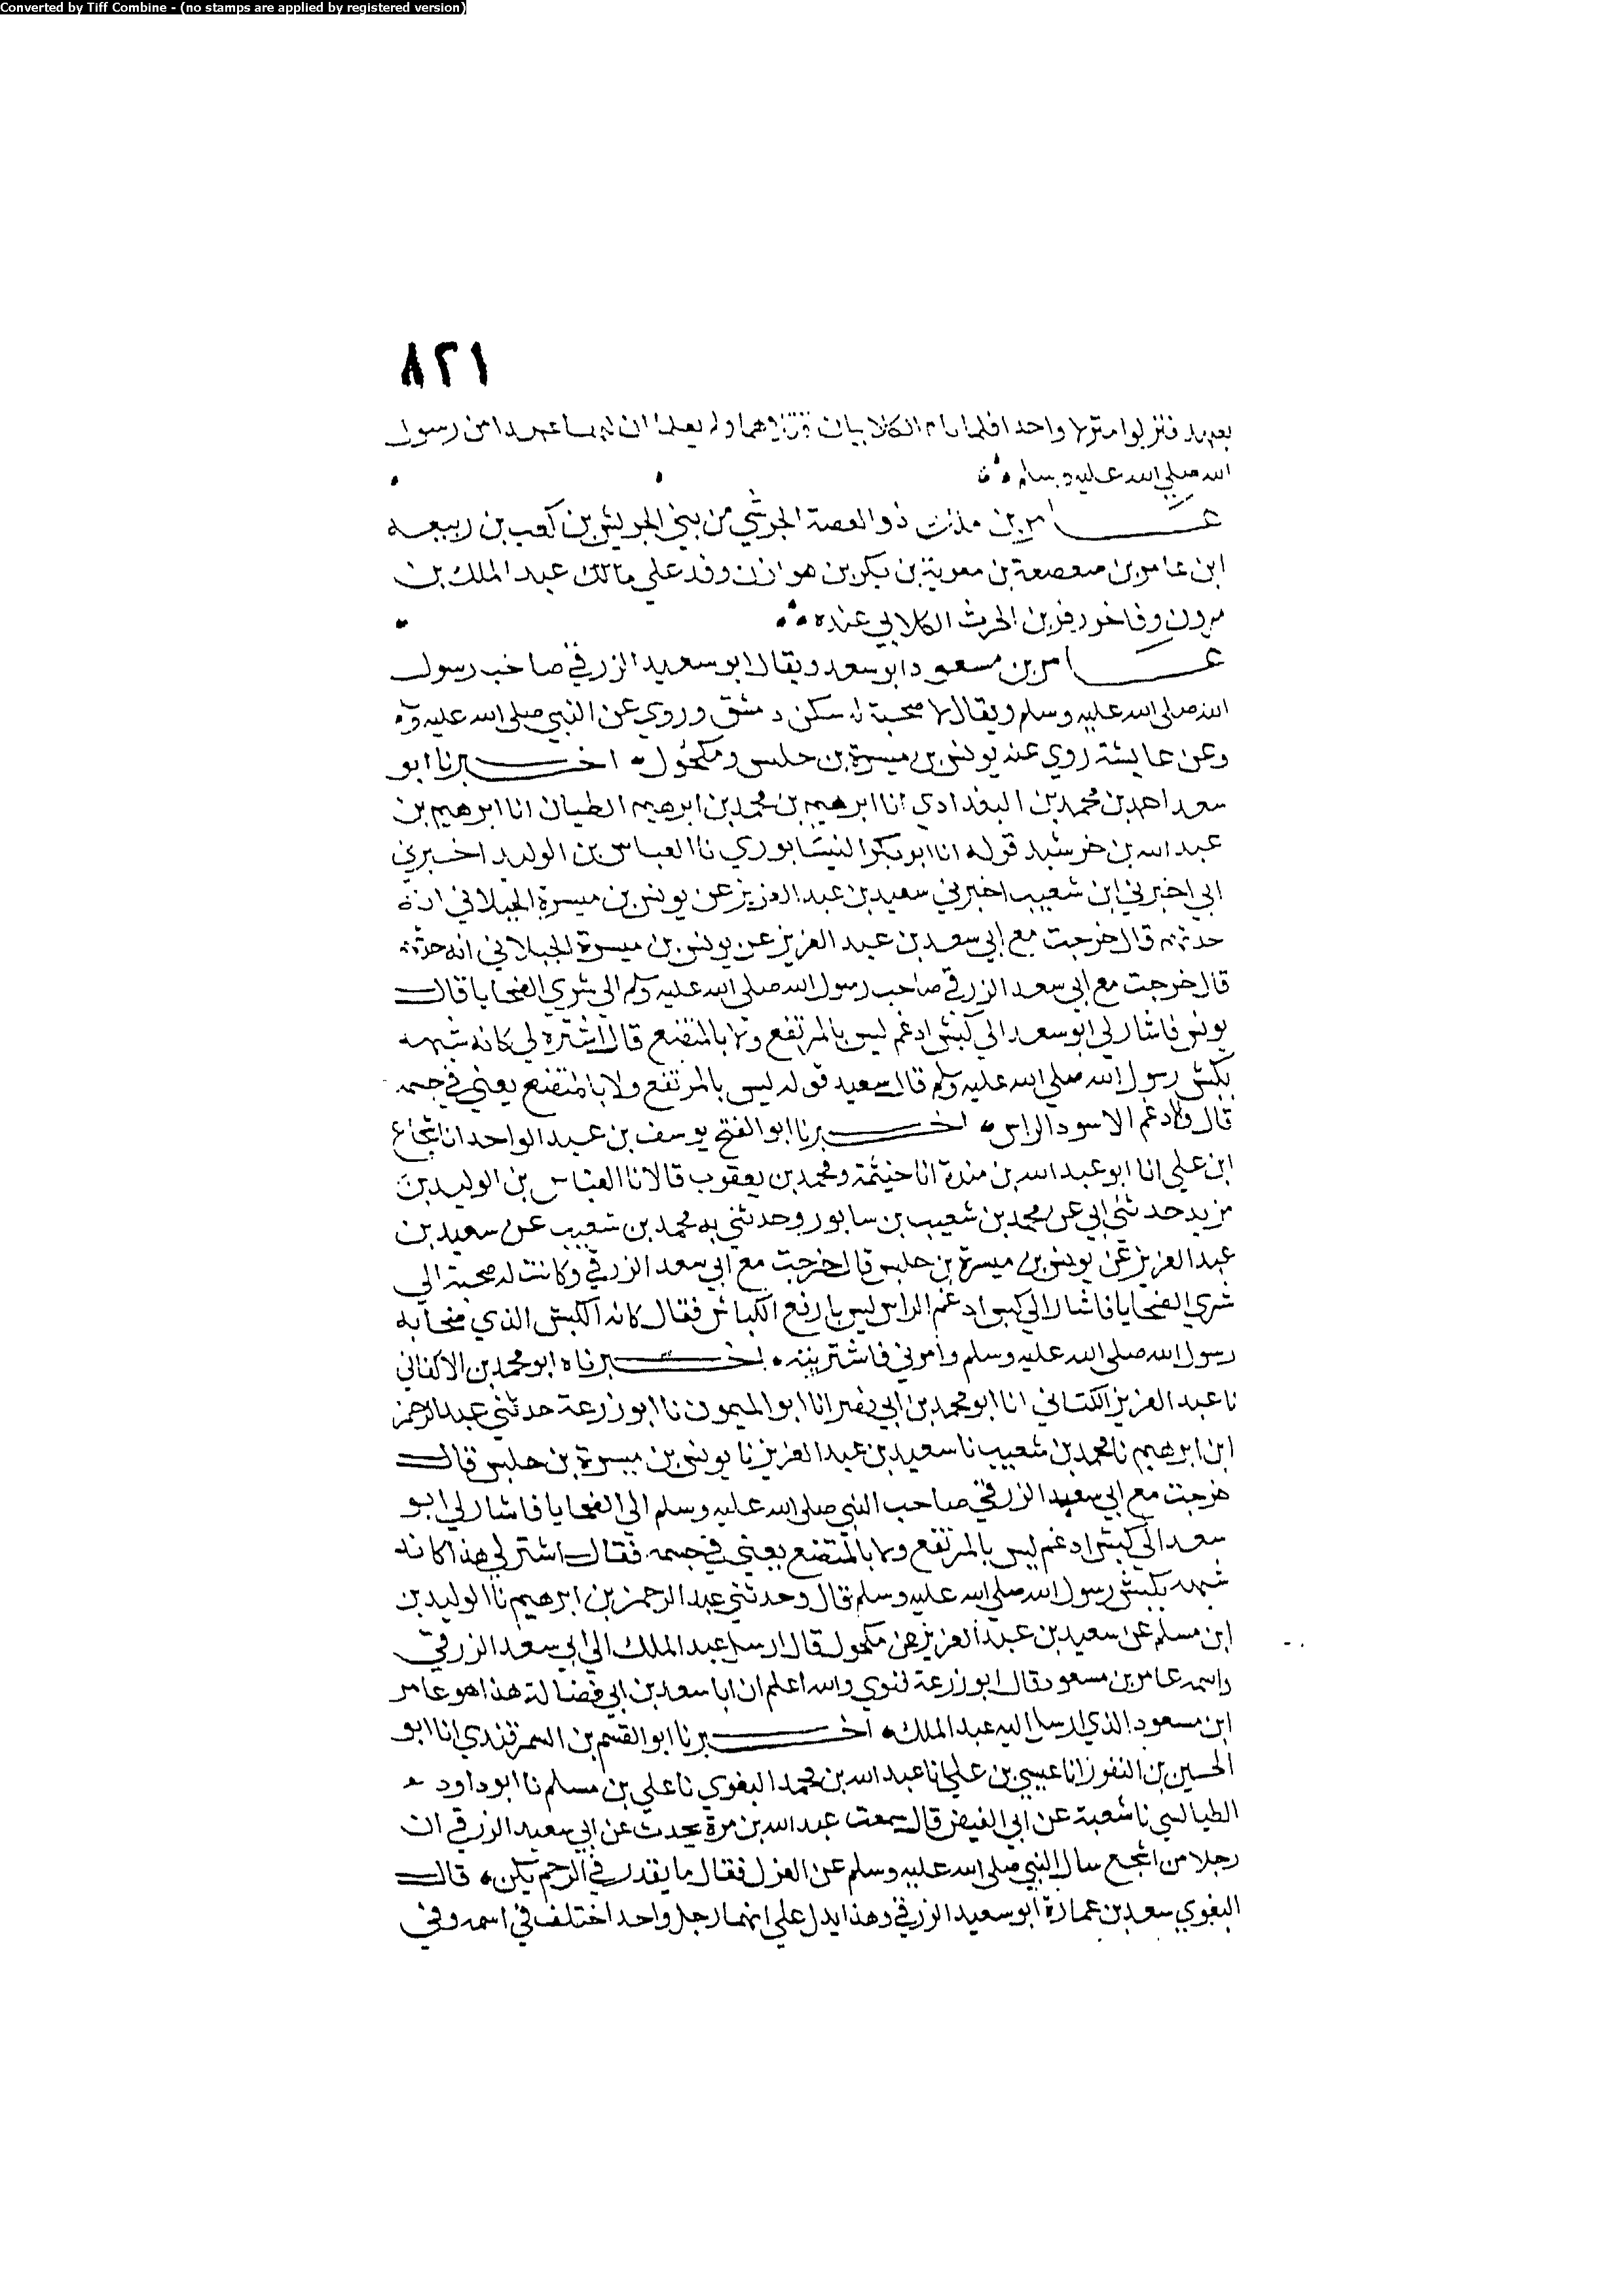 Converted by Tiff Combine - (no stamps are applied by registered version)
٨٢١
فنزلوا منزلا واحدا فلما نام الكلابيان وثب ولم يعلم ان لهما عهدا من رسول
الله صلي الله عليه وسلم
عامر بن مالك ذو الغصة الجرشي من بني الحريش بن كعب بن ربيعه
ابن عامر بن صعصعة بن معوية بن بكر بن هوازن وفد علي عبد الملك بن
مرون وفاخر زفر بن الحرث الكلابي عنده
عامر بن مسعود ابو سعد ويقال ابو سعيد الزرقي صاحب رسول
الله صلى الله عليه وسلم ويقال لا صحبة له سكن دمشق وروي عن النبي صلى الله عليه وسلم
وعن عايشة روي عنه يونس بن ميسرة بن حلبس ومكحول اخبرنا ابو
سعد احمد بن محمد بن البغدادي انا ابرهيم بن محمد بن ابرهيم الطيان انا ابرهيم بن
عبد الله بن خرشيد قوله انا ابو بكر النيسابوري نا العباس بن الوليد اخبرني
ابي اخبرني ابن شعيب اخبرني سعيد بن عبد العزيز عن يونس بن ميسرة الجبلاني انه
حدثهم قال خرجت مع ابي سعد بن عبد العزيز عن يونس بن ميسرة الجبلاني انه حدثهم
قال خرجت مع ابي سعد الزرقي صاحب رسول الله صلى الله عليه وسلم الي شري الضحايا قال
يونس فاشار لي ابو سعد الي كبش ادغم ليس بالمرتفع ولا بالمتضع قال اشتره لي كانه شبهه
بكبش رسول الله صلي الله عليه وسلم قال سعيد قوله ليس بالمرتفع ولا بالمتضع يعني في جسمه
قال والادغم الاسود الراس اخبرنا ابو الفتح يوسف بن عبد الواحد انا شجاع
ابن علي انا ابو عبد الله بن مندة انا خيثمة ومحمد بن يعقوب قالا نا العباس بن الوليد بن
مزيد حدثني ابي عن محمد بن شعيب بن سابور وحدثني به محمد بن شعيب عن سعيد بن
عبد العزيز عن يونس بن ميسرة بن حلبس قال خرجت مع ابي سعد الزرقي وكانت له صحبة الي
شري الضحايا فاشار الي كبش ادغم الراس ليس بارفع الكباش فقال كانه الكبش الذي ضحا به
رسول الله صلى الله عليه وسلم وامرني فاشتريته اخبرناه ابو محمد بن الاكفاني
نا عبد العزيز الكتاني انا ابو محمد بن ابي نصر انا ابو الميمون نا ابو زرعة حدثني عبد الرحمن
ابن ابرهيم نا محمد بن شعيب نا سعيد بن عبد العزيز نا يونس بن ميسرة بن حلبس قال
خرجت مع ابي سعيد الزرقي صاحب النبي صلى الله عليه وسلم الى الضحايا فاشار لي ابو
سعد الي كبش ادغم ليس بالمرتفع ولا بالمتضع يعني في جسمه فقال اشتر لي هذا كانه
شبهه بكبش رسول الله صلي الله عليه وسلم قال وحدثني عبد الرحمن بن ابرهيم نا الوليد بن
ابن مسلم عن سعيد بن عبد العزيز عن مكحول قال ارسل عبد الملك الي ابي سعد الزرقي
واسمه عامر بن مسعود قال ابو زرعة لنوي والله اعلم ان ابا سعد بن ابي فضالة هذا هو عامر
ابن مسعود الذي ارسل اليه عبد الملك اخبرنا ابو القسم بن السمرقندي انا ابو
الحسين بن النقور انا عيسي بن علي انا عبد الله بن محمد البغوي نا علي بن مسلم نا ابو داود
الطيالسي نا شعبة عن ابي الفيض قال سمعت عبد الله بن مرة يحدث عن ابي سعيد الزرقي ان
رجلا من اشجع سال النبي صلى الله عليه وسلم عن العزل فقال ما يقدر في الرحم يكن قال
البغوي سعد بن عمارة ابو سعيد الزرقي وهذا يدل علي انهما رجل واحد اختلف في اسمه وفي